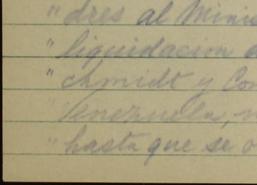 "dres al Minis
"liquidacion d
"chmidt y Com
"Venezuela,
"hasta que se o